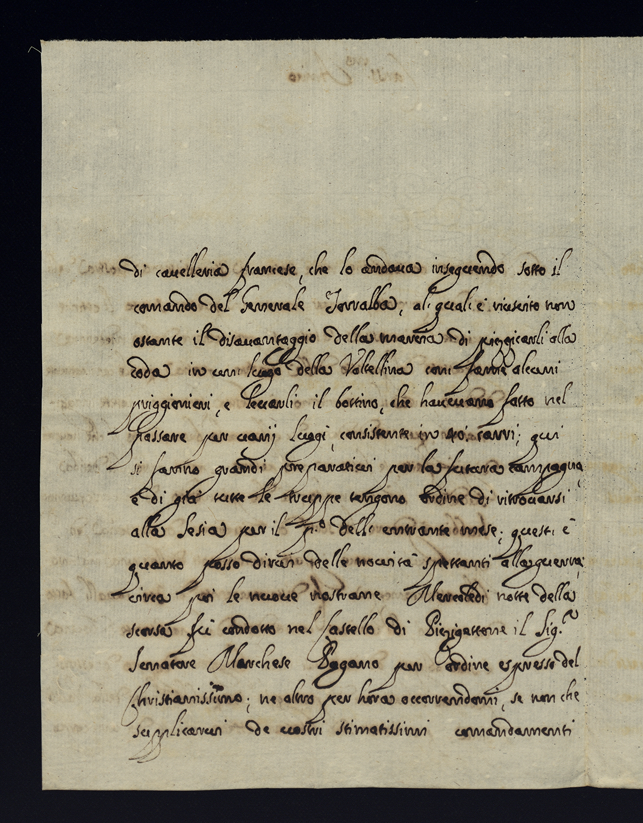 di cavelleria francese, che lo andava inseguendo sotto il
comando del Generale Torralba, al quale è riuscito non
ostante il disavantaggio della marchia di pizzicarli alla
coda in un luogo della Valtellina con farne alcuni
priggionieri, e levarli il bottino, che havevano fatto nel
passare per varij luogi, consistente in 40 carri; qui
si fanno grandi preparativi per la futura campagna
e di già tutte le truppe tengono ordine di ritrovarsi
alla Sesia per il p.o dell' entrante mese; questi è
quanto posso dirvi delle novità spettanti alla guerra;
circa poi le nuove nostrane Mercoledì notte della
scorsa fù condotto nel Castello di Pizigattone il Sig.r
Senatore Marchese Pagano per ordine espresso del
Christianissimo; ne altro per hora occorrendomi, se non che
suplicarvi de vostri stimatissimi comandamenti